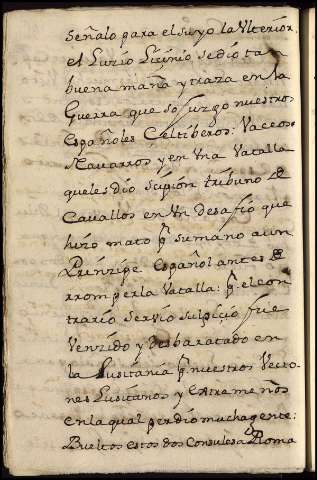 señalo para el suyo la Vlterior.
el Luzio Lizinio se dio ta
buena maña y traza en la
Guerra que sojuzgo nuestros
Españoles Celtiberos: Vaceos
Navarros y en Vna Vatalla
que les dio Sipion tribuno de
Cavallos en Vn desafio que
hizo mato pr su mano a un
Prinzipe Español antes de
rromper la Vatalla: pr. el con
trario Servio Sulpiçio fue
Venzido y desbaratado en
la Lusitania pr nuestros Vecto
nes Lusitanos y Extremeños
en la qual perdio mucha gente:
Bueltos estos dos Consules a Roma